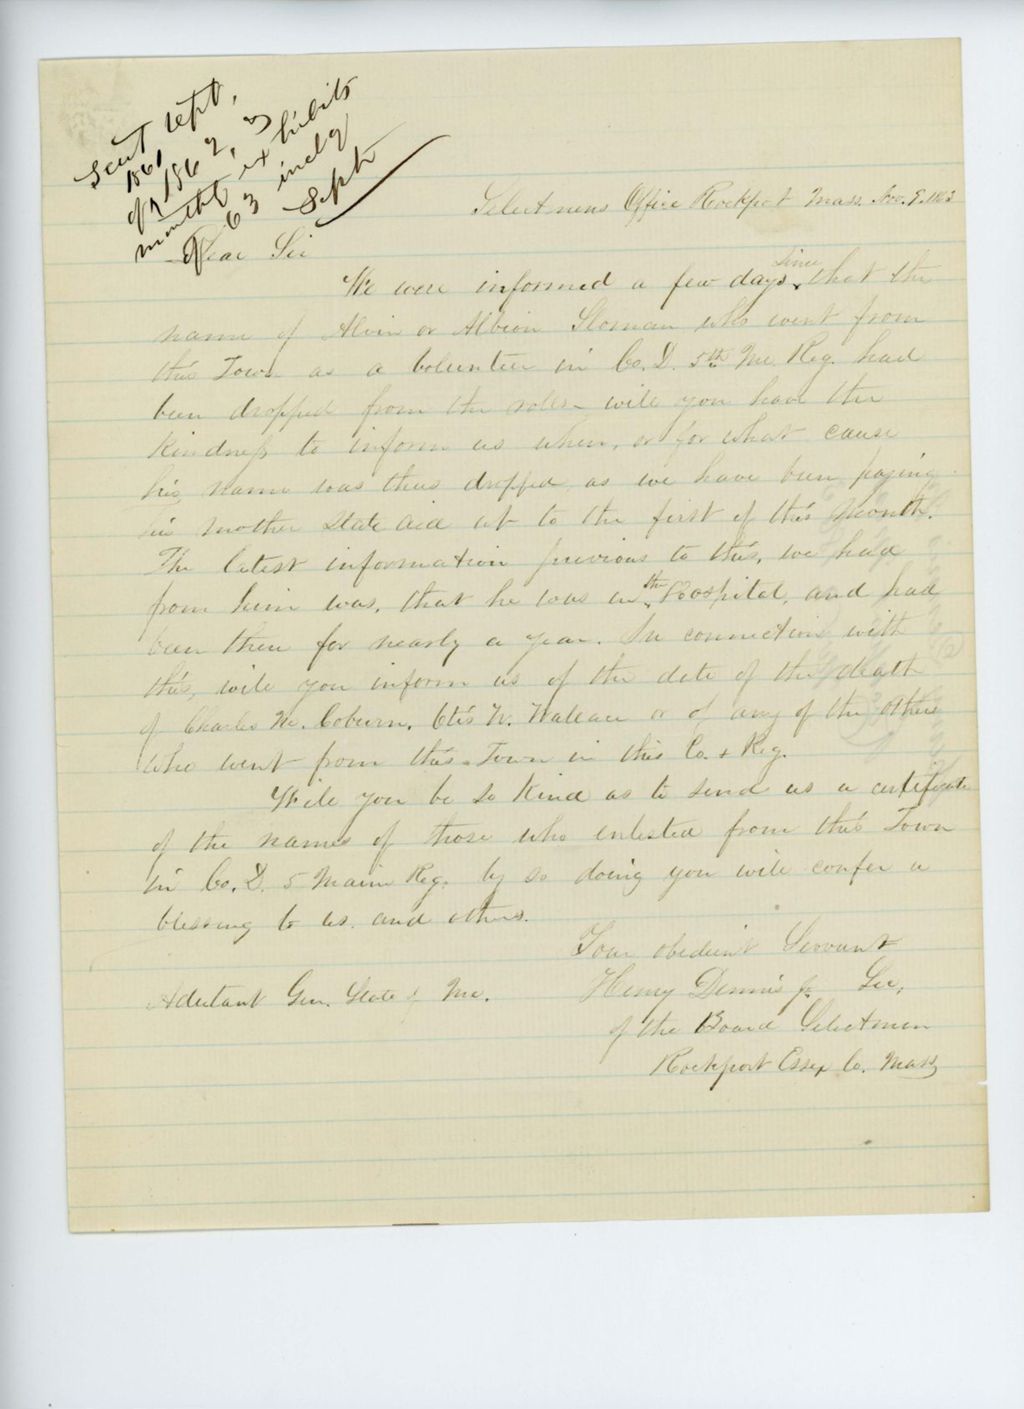 Sent rept,
1861
of 1862, &
monthly exhibits
of 63 incl g
Sept
Selectmens Office Rockport Mass. Nov. 9. 1863
Dear Sir
We were informed a few days since that the
name of Alvin or Albion Sloman who went from
this Town as a Volunteer in Co. D. 5th Me. Reg. had
been dropped from the roles - will you have the
kindness to inform us when, or for what cause
his name was thus dropped, as we have been paying
his mother State aid up to the first of this Month.
The latest information previous to this, we had
from him was, that he was in the Hospital, and had
been there for nearly a year. In connection with
this, will you inform us of the date of the death
of Charles M. Coburn, Otis W. Wallace or of any of the others
who went from this Town in this Co. & Reg.
Will you be so kind as to send us a certificate
of the names of those who enlisted from this Town
in Co. D. 5 Maine Reg. by so doing you will confer a
blessing to us. and others.
Your obedient Servant
Adutant Gen. State of Me.
Henry Dennis Jr. Sec,
of the Board Selectmen
Rockport Essex Co. Mass